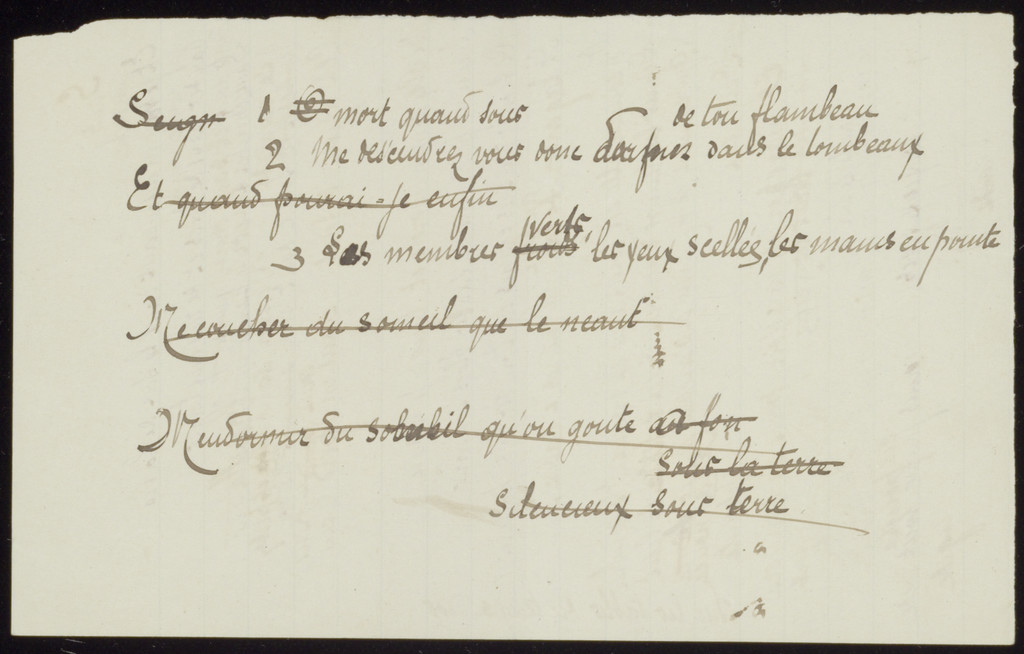 Seugn 1 O mort quand sous de ton flambeau
2 Me descendrez vous donc dormez dans le tombeaux
Et quand pourai-je enfin
verts,
3 Les membres froids les yeux scellés, les mains en pointe
Me coucher du someil que le neant
M'endormir du soleil qu'on goute
sous la terre
silencieux sous terre